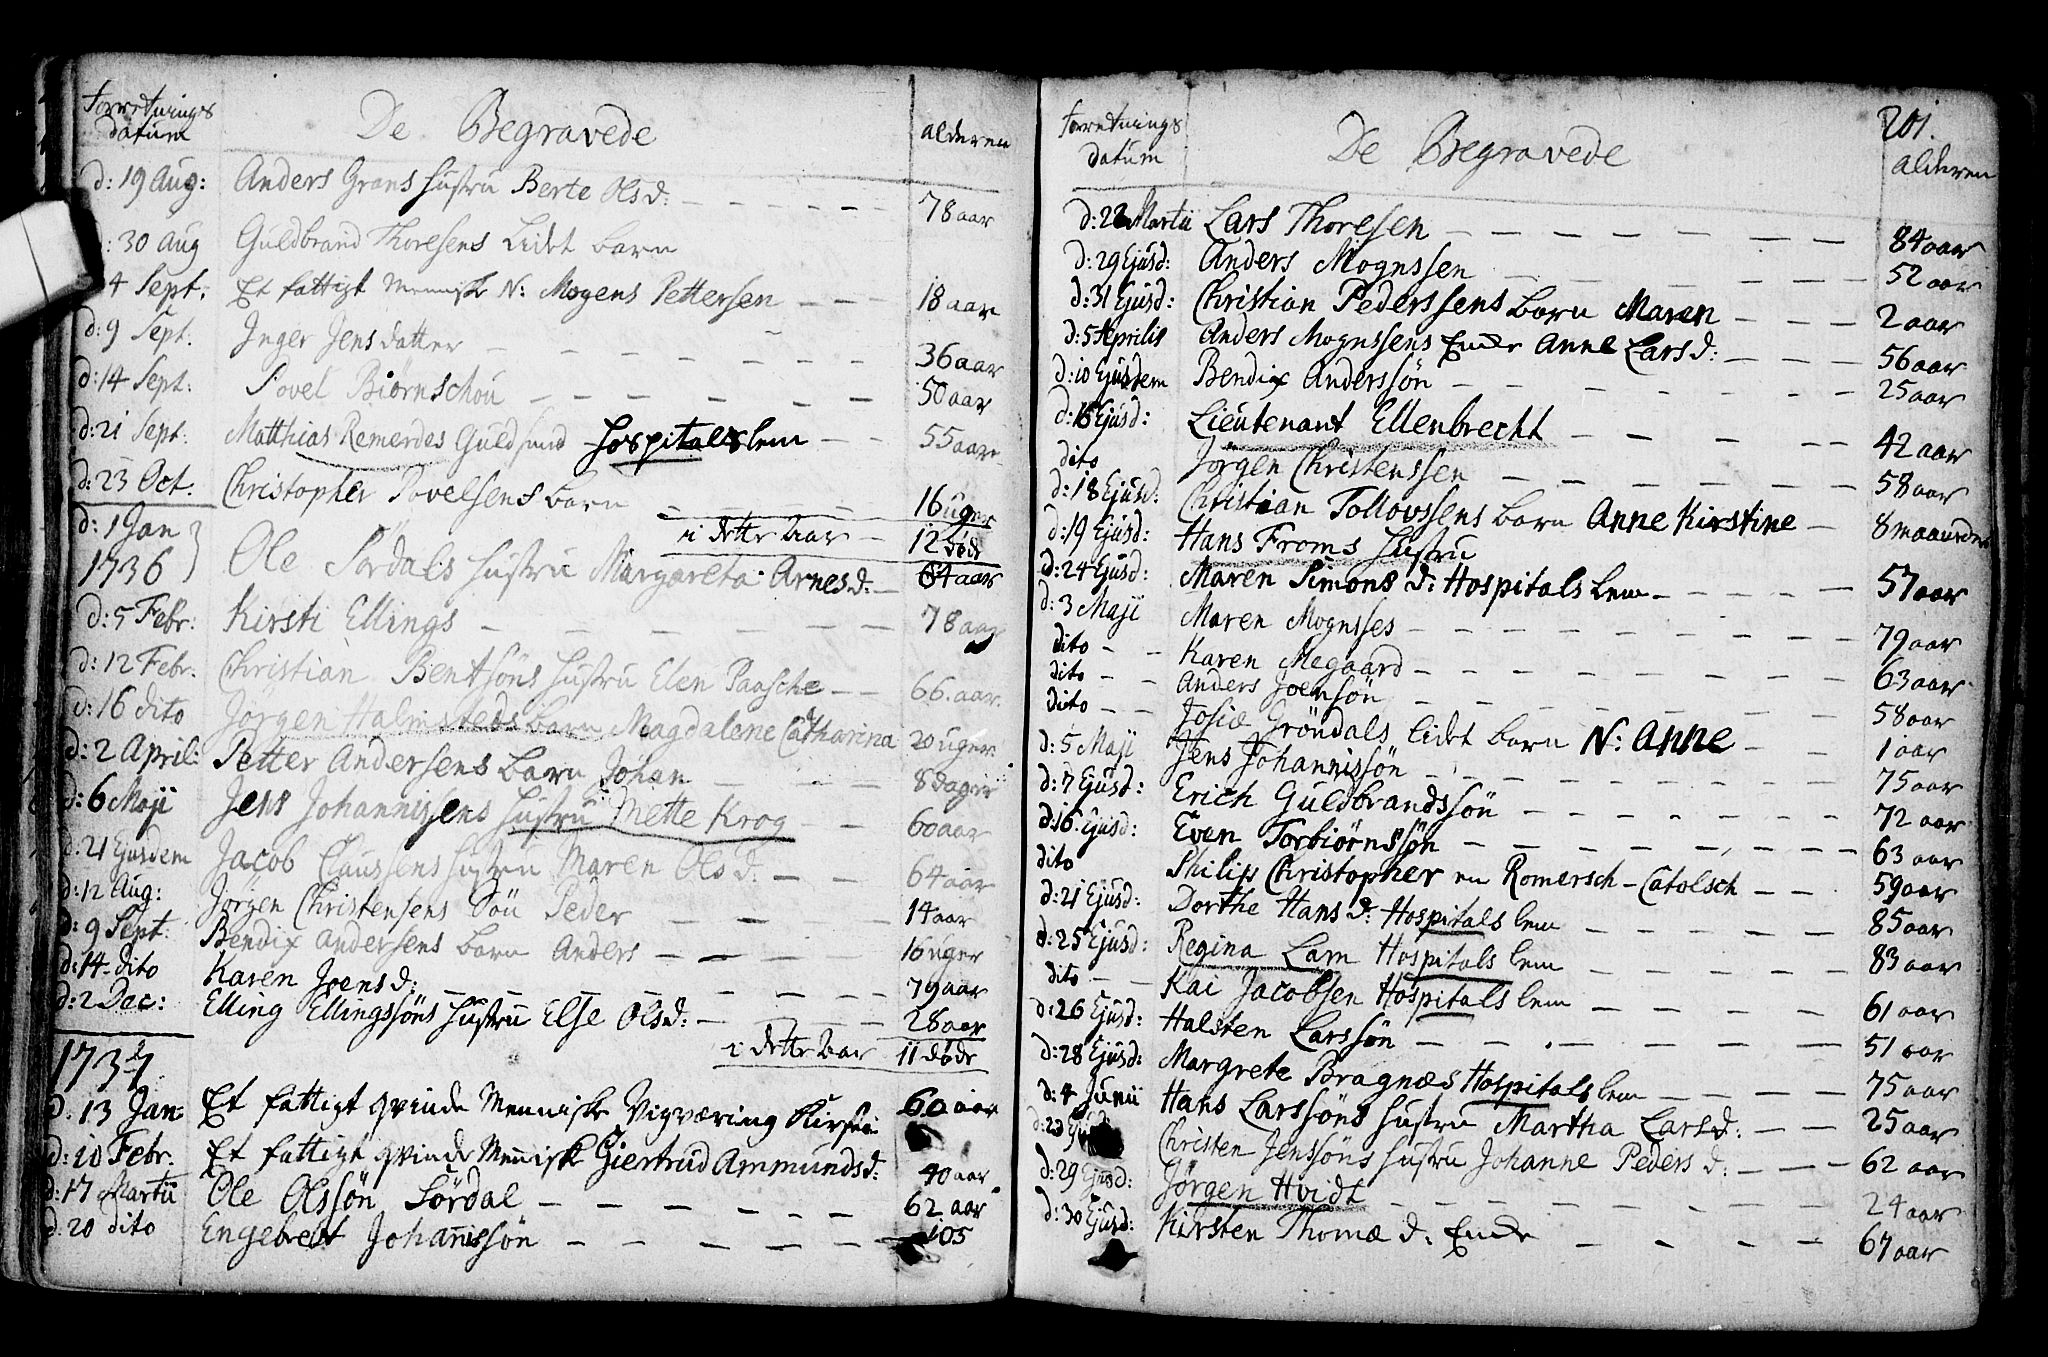 Forretnings
datum
De Begravede
alderen
d: 19 Aug: Anders Grans Hustru Berte Olsd. 78 aar
d: 30 Aug Guldbrand Thoresens Lidet barn
d: 4 Sept. Et fattigt Menniske N: Mogens Pettersen 18 aar
d: 9 Sept. Inger Jensdatter 36 aar
d: 14 Sept: Povel Biörnschou 50 aar
d: 21 Sept: Matthias Remerdes Guldsmed Hospitalslem 55 aar
d: 23 Oct. Christopher Povelsens barn 16 uger
i dette Aar 12 døde
d: 1 Jan 1736 Ole Sördals Hustru Margareta Arnesd: 64 aar
d: 5 Febr: Kirsti Ellings 78 aar
d: 12 Febr. Christian Bentsöns Hustru Elen Paasche 66. aar.
d: 16 dito Jörgen Halmsteds barn Magdalene Catharina 20 uger
d: 2 April: Petter Andersens barn Johan 8 dage
d: 6 Maji Jens Johannissens Hustru Mette Krog 60 aar
d: 21 Ejusdem Jacob Claussens Hustru Maren Olsd: 64 aar
d: 12 Aug: Jörgen Christensens Sön Peder 14 aar
d: 9 Sept: Bendix Andersens barn Anders 16 uger
d: 14 dito Karen Joensd: 79 aar
d: 2 Dec: Elling Ellingssöns Hustru Else Olsd: 28 aar
i dette Aar 11 døde
1737
d. 13 Jan: Et fattigt qvinde Menniske Vigværing Kirsti 60 aar
d: 10 Febr. Et fattigt qvinde Menniske Giertrud Ammundsd: 40 aar
d: 17 Martii Ole Olssön Sördal 62 aar
d. 20 dito Engebret Johannissön 105
201.
Forretnings
datum
De Begravede
alderen
d: 22 Martii Lars Thoresen 84 aar
d: 29 Ejusd: Anders Mognssen 52 aar
d: 31 Ejusd: Christian Pederssens barn Maren 2 aar
d: 5 Aprilis Anders Mognssens Encke Anne Larsd: 56 aar
d: 10 Ejusdem Bendix Anderssön 25 aar
d: 16 Ejusd: Lieutenant Ellenbrecht 42 aar
dito Jörgen Christenssen 58 aar
d: 18 Ejusd: Christian Tollovssens barn Anne Kirstine 8 maaneder
d: 19 Ejusd: Hans Froms Hustru
d: 24 Ejusd: Maren Simons d: Hospitals lem 57 aar
d: 3 Maji Maren Mognsses 79 aar
dito Karen Megaard 63 aar
dito Anders Joensön 58 aar
dito Josiæ Gröndals lidet barn N: Anne 1 aar
d: 5 Maji Jens Johannissön 75 aar
d: 7 Ejusd: Erich Guldbrandssön 72 aar
d: 16. Ejusd: Even Torbiörnssön 63 aar
dito Philip Christopher en Romersch-Catolsch 59 aar
d: 21 Ejusd: Dorthe Hans d: Hospitals lem 85 aar
d: 25 Ejusd: Regina Lam Hospitals lem 83 aar
dito Kai Jacobsen Hospitals lem 61 aar
d: 26 Ejusd: Halsten Larssön 51 aar
d: 28 Ejusd: Margrete Bragnæs Hospitals lem 75 aar
d: 4 Junii Hans Larssöns Hustru Martha Larsd: 25 aar
d: 23 Christen Jenssöns Hustru Johanne Peders d: 62 aar
d: 29 Ejusd: Jörgen Hvidt 24 aar
d: 30 Ejusd: Kirsten Thomæ d. Encke 67 aar